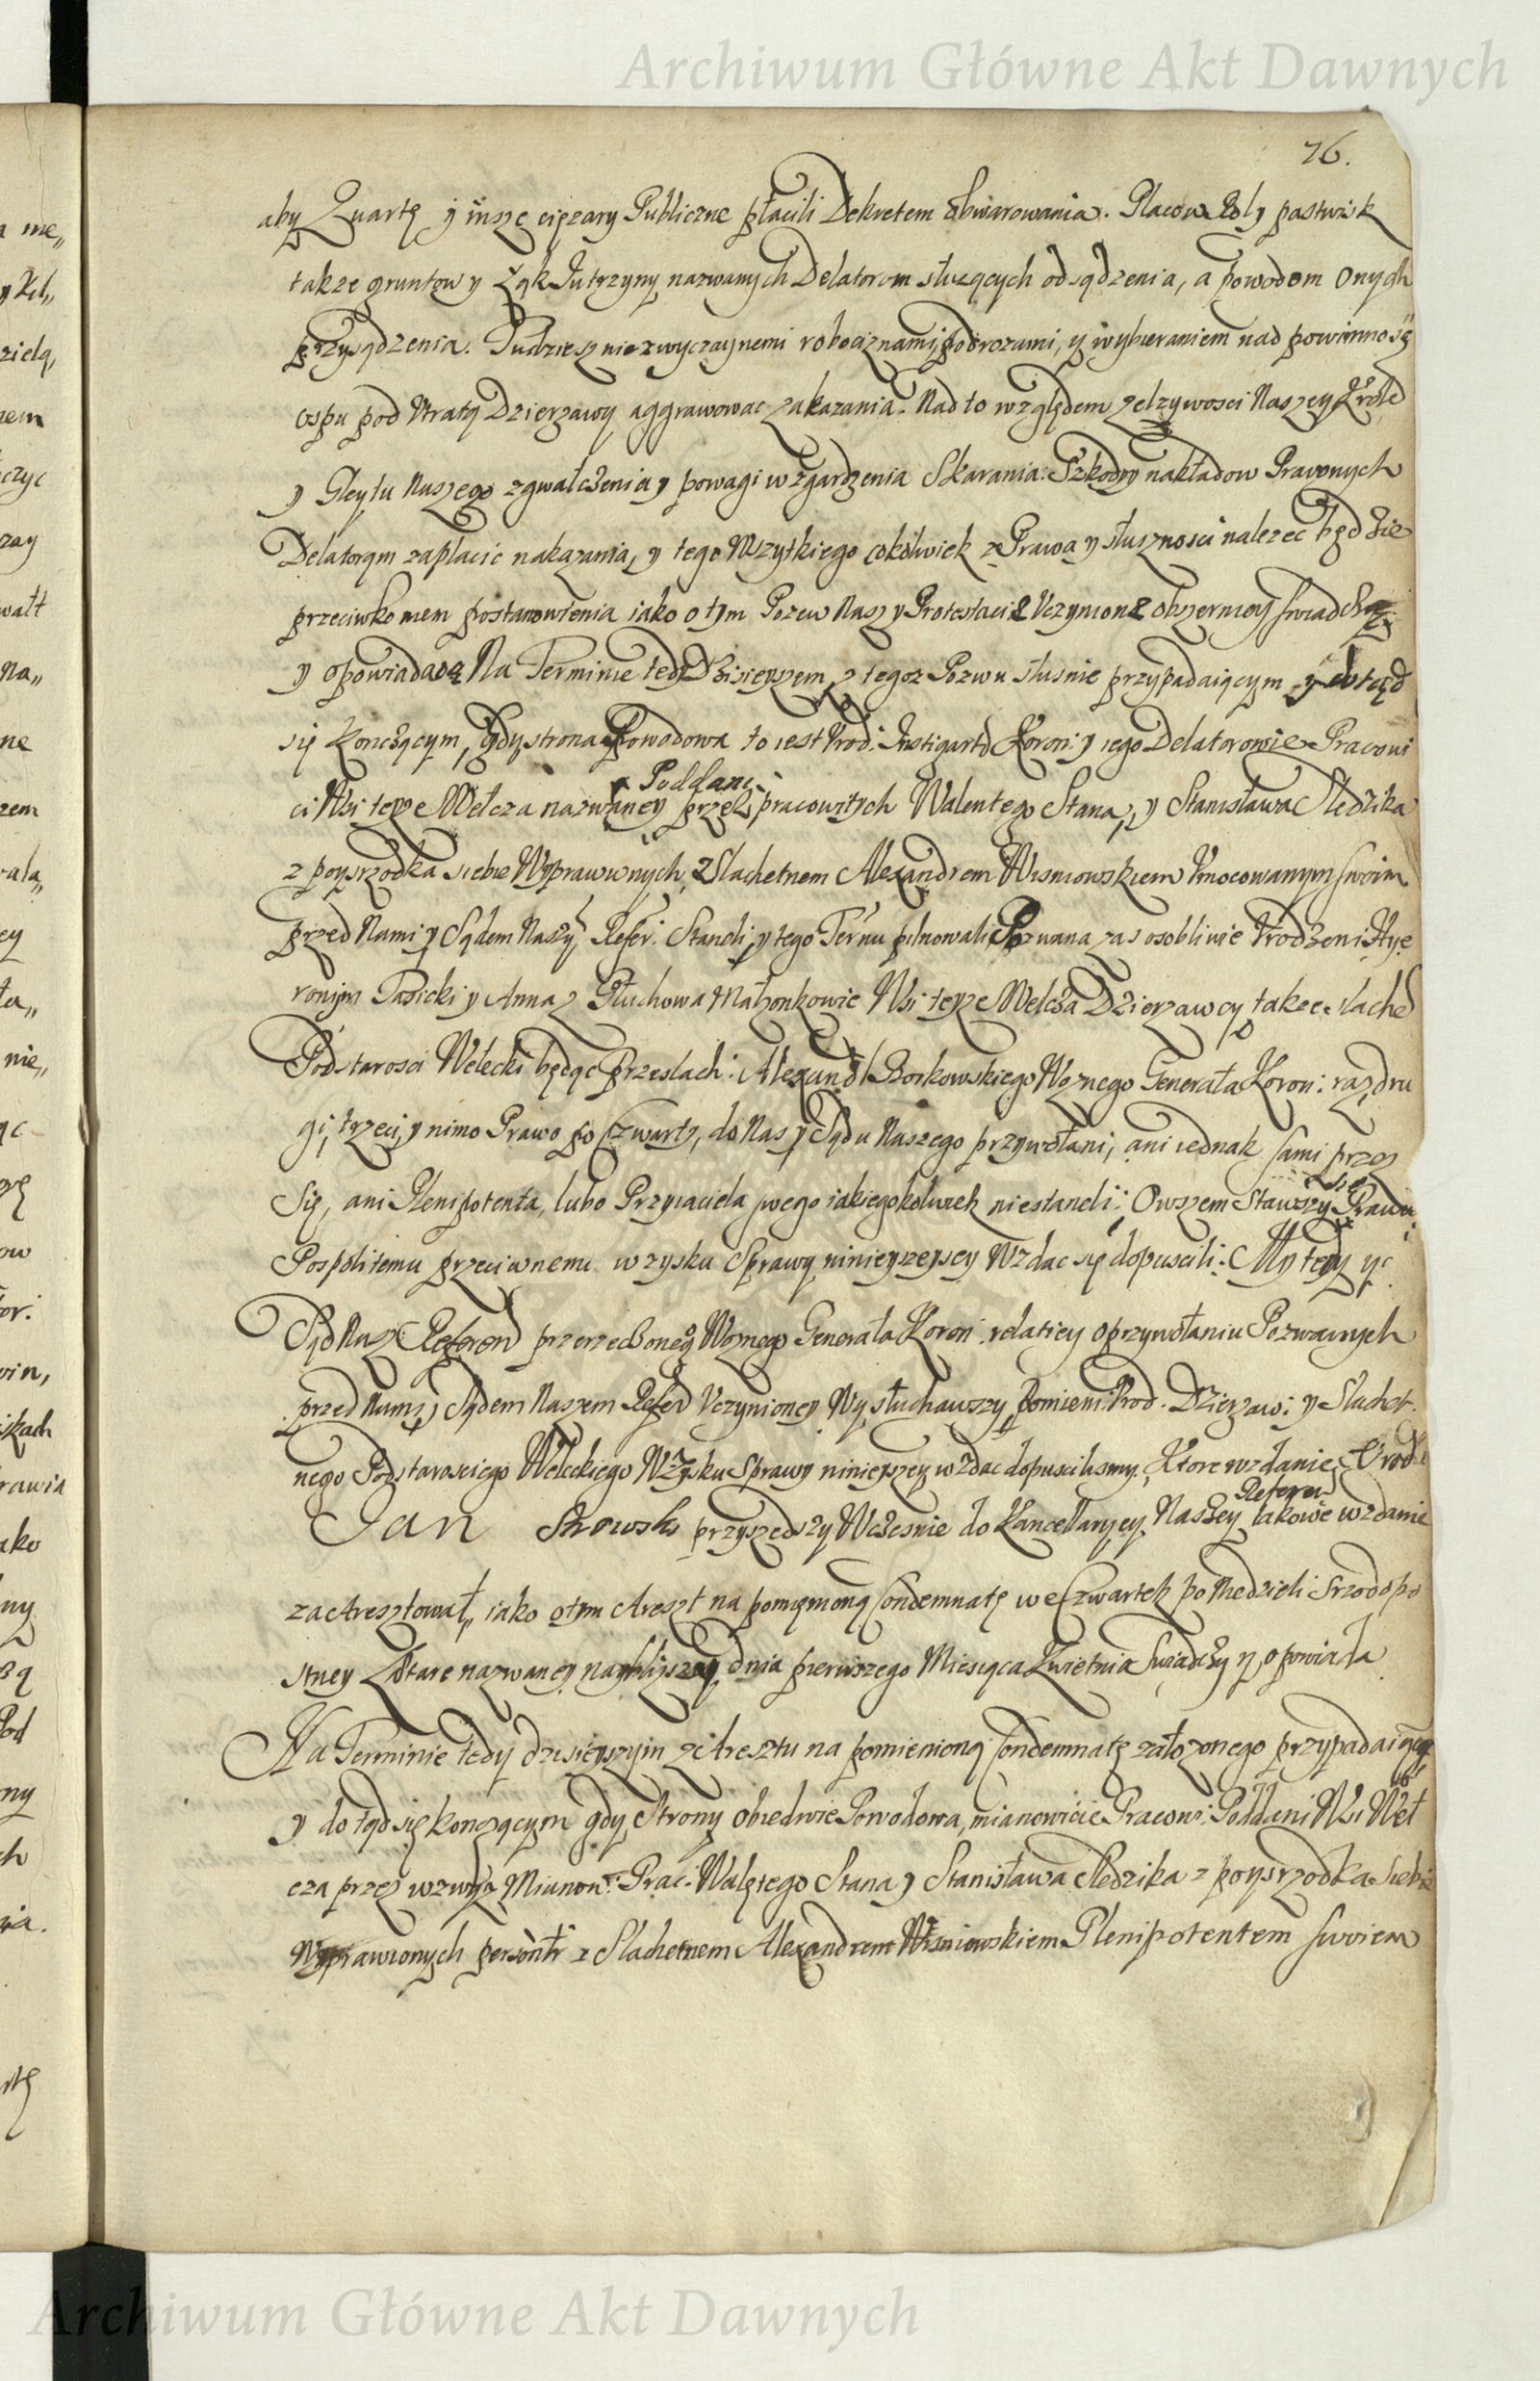 Archiwum Główne Akt Dawnych
76.
aby Quartę y insze cięzary Publiczne płacili Dekretem obwarowania. Placow Roly pastwisk
takze gruntow y Łąk Jutrzyny nazwanych Delatorom słuzących odsądzenia, a powodom onych
przysądzenia. Tudziesz niezwyczaynemi robociznami, podrozami, y wybieraniem nad powinność
ospu pod Utratą Dzierzawy aggrawowac zakazania. Nad to względem zelzywosci Naszey Krole
y Gleytu Naszego zgwałczenia y powagi wzgardzenia Skarania: Szkody y nakładow Prawnych
Delatorom zaplacic nakazania, y tego Wszytkiego cokolwiek z Prawa y słusznosci nalezec będzie
przeciwko niem postanowienia iako o tym Pozew Nasz y Protestacie Uczynione obszerniey swiadczą
y opowiadaią Na Terminie tedy Dzisieyszem z tegoz Pozwu słusnie przypadaiącym y dotąd
się konczącym, gdy strona Powodowa to iest Urod: Instigator Koron: y iego Delatorowie Pracowi
Poddani
ci Wsi teyze Wełcza nazwaney przez pracowitych Walentego Stana, y Stanisława Sledzika
z poysrzodka siebie Wyprawionych, z Slachetnem Alexandrem Wisniowskiem Umocowanym swoim
przed Nami y Sądem Naszy Refer: Staneli, y tego Ternu pilnowali Pozwana zas osobliwie Urodzeni Hye
ronijm Jasicki y Anna z Głuchowa Małzonkowie Wsi teyze Wełcza Dzierzawcy takze slache
Podstarosci Welecki będąc przeslach: Alexand Borkowskiego Woznego Generała Koron: raz, dru
gi, trzeci, y nimo Prawo po Czwarty, do Nas y Sądu Naszego przywołani, ani iednak sami przez
Się, ani Plenipotenta, lubo Przyiaciela swego iakiegokolwiek niestaneli: Owszem Stawszy się Prawu
Pospolitemu przeciwnemi w zysku Sprawy ninieyszey sey Wzdac się dopuscili: My tedy yc
Sąd Nasz Referen przerzeczonego Woznego Generała Koron: relatiey o przywołaniu Pozwanych
przed Nami y Sądem Naszem Refer Uczynioney Wysłuchawszy, Pomieni: Urod: Dzierzaw: y Slachet
nego Podstarosciego Weleckiego W Zysku Sprawy ninieyszey wzdac dopuscilismy. Ktore wzdanie Urodz
Referen
Jan przyszedszy Wczesnie do Kancellaryey Naszey takowe wzdanie
zaaresztował, iako o tym Areszt na pomienioną Condemnatę we Czwartek po Niedzieli Srzodopo
stney Lætare nazwaney naybliszey dnia pierwszego Miesiąca Kwietnia Swiadczy y opowiada
Na Terminie tedy dzisieyszym z Aresztu na pomienioną Condemnatę załozonego przypadaiącym
y dotąd się konczącym gdy Strony obiedwie Powodowa, mianowicie Pracow: Poddani Wsi Weł
cza przez wzwyz Mianow: Prac: Walętego Stana y Stanisława Sledzika z poysrzodka siebie
Wyprawionych z Slachetnem Alexandrem Wisniowskiem Plenipotentem swoiem
Archiwum Główne Akt Dawnych